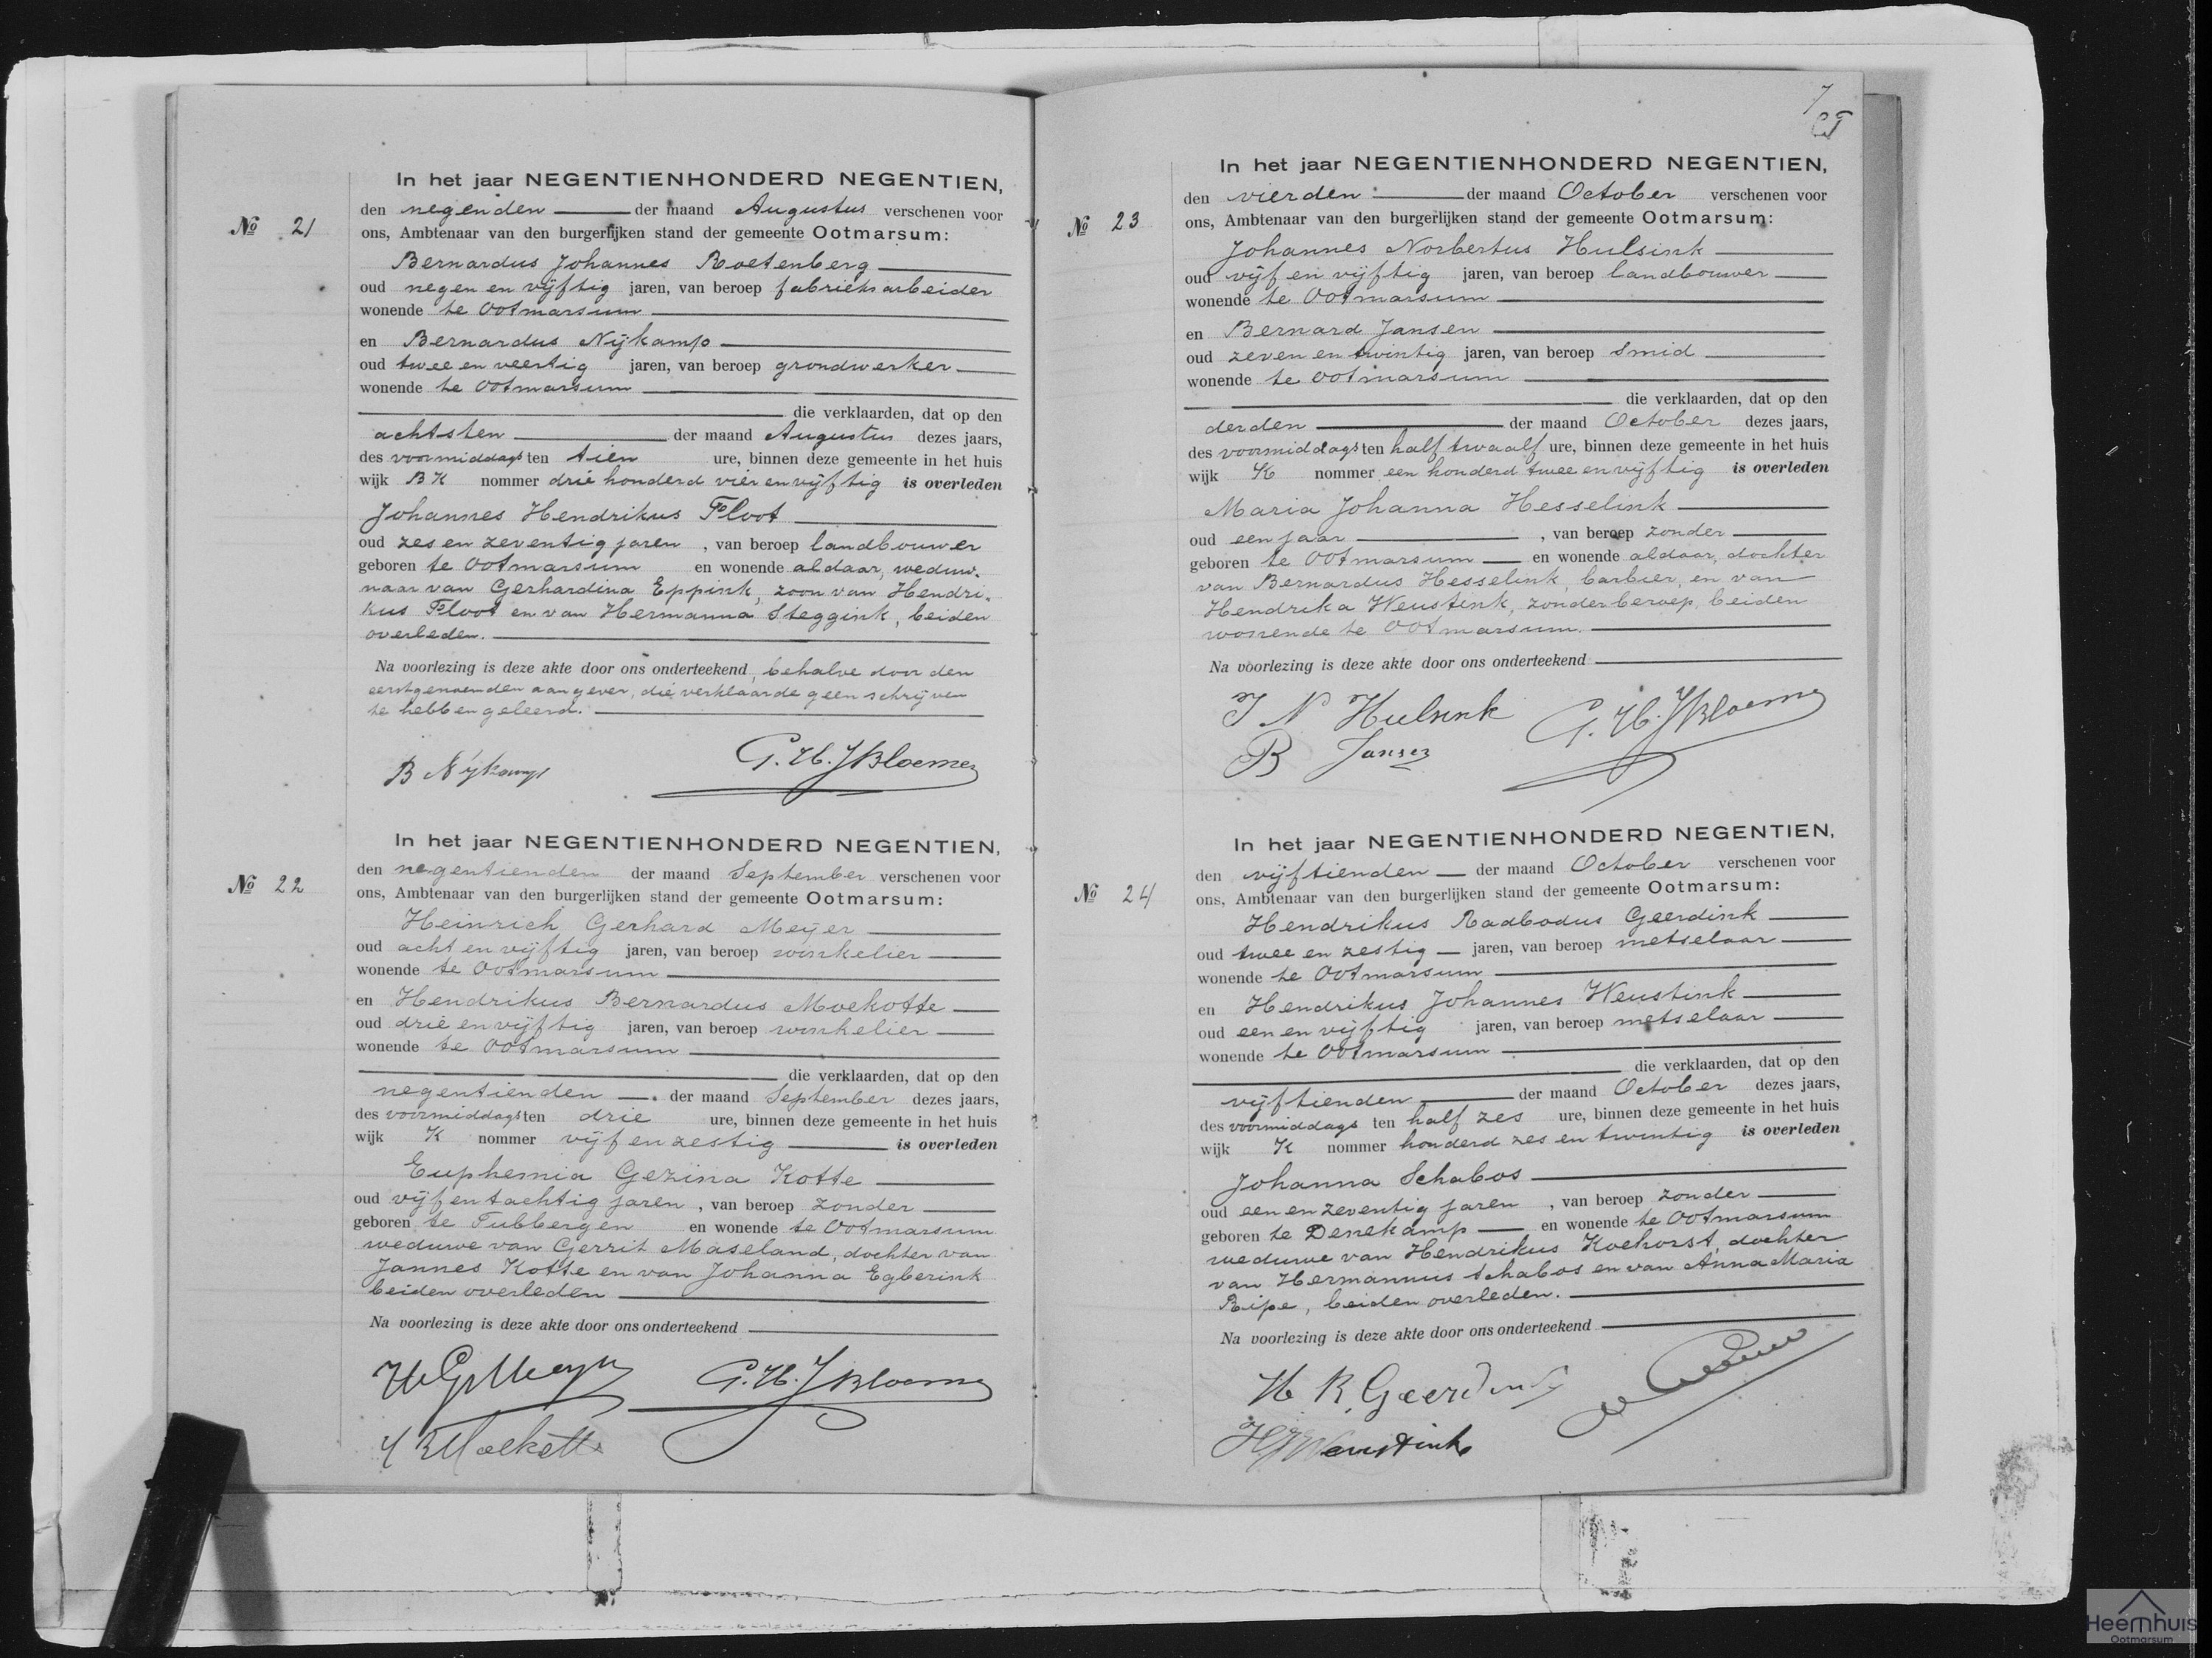 In het jaar NEGENTIENHONDERD NEGENTIEN,
den negenden der maand Augustus verschenen voor
No 21 ons, Ambtenaar van den burgerlijken stand der gemeente Ootmarsum:
Bernardus Johannes Roetenberg
oud negen en vijftig jaren, van beroep fabrieksarbeider
wonende te Ootmarsum
en Bernardus Nijkamp
oud twee en veertig jaren, van beroep grondwerker
wonende te Ootmarsum
die verklaarden, dat op den
achtsten der maand Augustus dezes jaars,
des voormiddags ten tien ure, binnen deze gemeente in het huis
wijk BK nommer drie honderd vier en vijftig is overleden
Johannes Hendrikus Floot
oud zes en zeventig jaren, van beroep landbouwer
geboren te Ootmarsum en wonende aldaar, weduw-
naar van Gerhardina Eppink, zoon van Hendri-
kus Floot en van Hermanna Steggink, beiden
overleden.
Na voorlezing is deze akte door ons onderteekend, behalve door den
eerstgenoemden aangever, die verklaarde geen schrijven
te hebben geleerd.
B Nijkamp G.H.J Bloemen
In het jaar NEGENTIENHONDERD NEGENTIEN,
den negentienden der maand September verschenen voor
No 22 ons, Ambtenaar van den burgerlijken stand der gemeente Ootmarsum:
Heinrich Gerhard Meÿer
oud acht en vijftig jaren, van beroep winkelier
wonende te Ootmarsum
en Hendrikus Bernardus Moekotte
oud drie en vijftig jaren, van beroep winkelier
wonende te Ootmarsum
die verklaarden, dat op den
negentienden der maand September dezes jaars,
des voormiddags ten drie ure, binnen deze gemeente in het huis
wijk K nommer vijf en zestig is overleden
Euphemia Gezina Kotte
oud vijf en tachtig jaren, van beroep zonder
geboren te Tubbergen en wonende te Ootmarsum
weduwe van Gerrit Maseland, dochter van
Jannes Kotte en van Johanna Egberink
beiden overleden
Na voorlezing is deze akte door ons onderteekend
H G Meyer G.H.J Bloemen
H B Moekotte
7
In het jaar NEGENTIENHONDERD NEGENTIEN,
den vierden der maand October verschenen voor
No 23 ons, Ambtenaar van den burgerlijken stand der gemeente Ootmarsum:
Johannes Norbertus Hulsink
oud vijf en vijftig jaren, van beroep landbouwer
wonende te Ootmarsum
en Bernard Jansen
oud zeven en twintig jaren, van beroep smid
wonende te Ootmarsum
die verklaarden, dat op den
derden der maand October dezes jaars,
des voormiddags ten half twaalf ure, binnen deze gemeente in het huis
wijk K nommer een honderd twee en vijftig is overleden
Maria Johanna Hesselink
oud een jaar, van beroep zonder
geboren te Ootmarsum en wonende aldaar, dochter
van Bernardus Hesselink, barbier, en van
Hendrika Weustink, zonder beroep, beiden
wonende te Ootmarsum.
Na voorlezing is deze akte door ons onderteekend
J N Hulsink G.H.J Bloemen
B Jansen
In het jaar NEGENTIENHONDERD NEGENTIEN,
den vijftienden der maand October verschenen voor
No 24 ons, Ambtenaar van den burgerlijken stand der gemeente Ootmarsum:
Hendrikus Radbodus Geerdink
oud twee en zestig jaren, van beroep metselaar
wonende te Ootmarsum
en Hendrikus Johannes Weustink
oud een en vijftig jaren, van beroep metselaar
wonende te Ootmarsum
die verklaarden, dat op den
vijftienden der maand October dezes jaars,
des voormiddags ten half zes ure, binnen deze gemeente in het huis
wijk K nommer honderd zes en twintig is overleden
Johanna Schabos
oud een en zeventig jaren, van beroep zonder
geboren te Denekamp en wonende te Ootmarsum
weduwe van Hendrikus Koehorst, dochter
van Hermannus Schabos en van Anna Maria
Ripe, beiden overleden.
Na voorlezing is deze akte door ons onderteekend
H R Geerdink
H J Weustink
Heemhuis
Ootmarsum